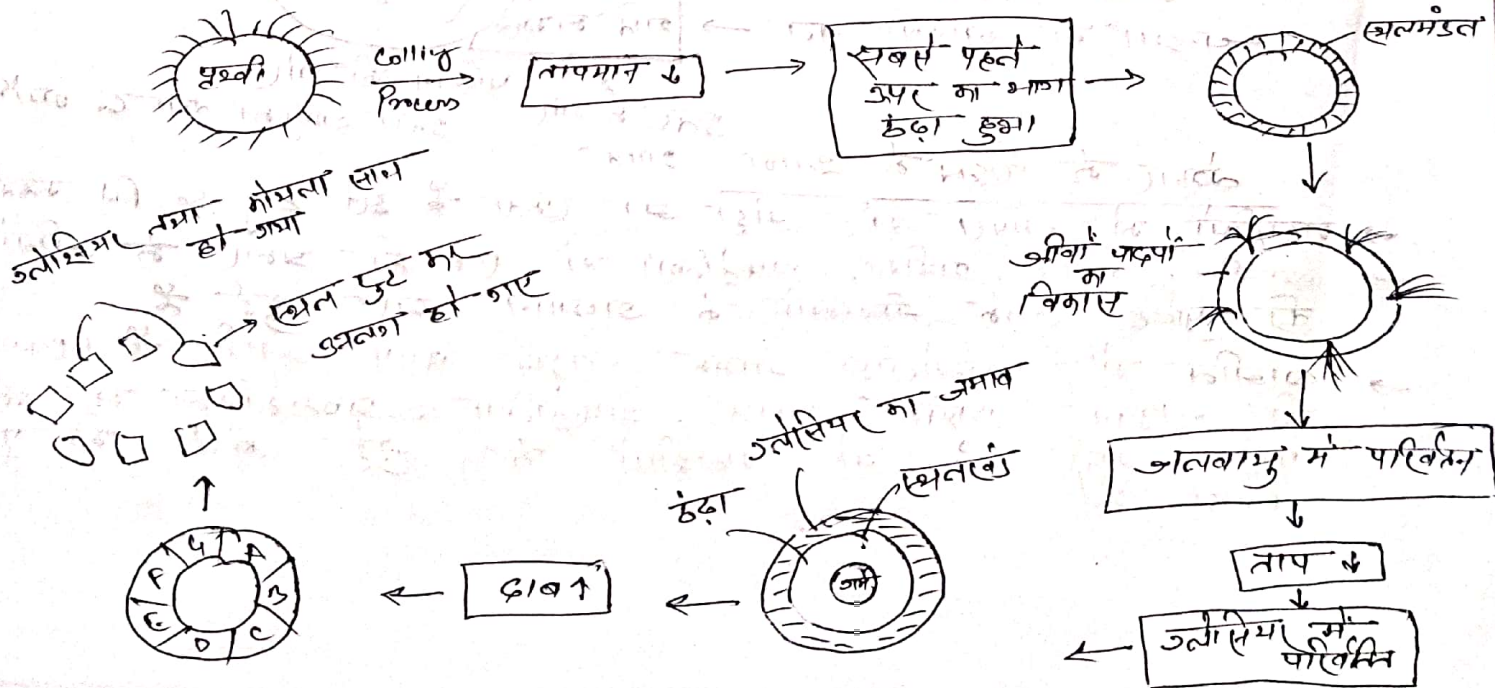 पृथ्वी
Colliy
Process
तापमान ↓
सबसे पहले
उपर का भाग
ठंढ़ा हुआ
स्थलमंडल
जीवों पादपों
का
विकास
जलवायु में परिवर्तन
ताप ↓
ग्लेसियर में
परिवर्तित
ग्लेसियर का जमाव
स्थलखंड
ठंढ़ा
गर्म
दाब ↑
G A
F B
E C
D
स्थल टुट कर
अलग हो गए
ग्लेशियर तथा कोयला साथ
हो गया